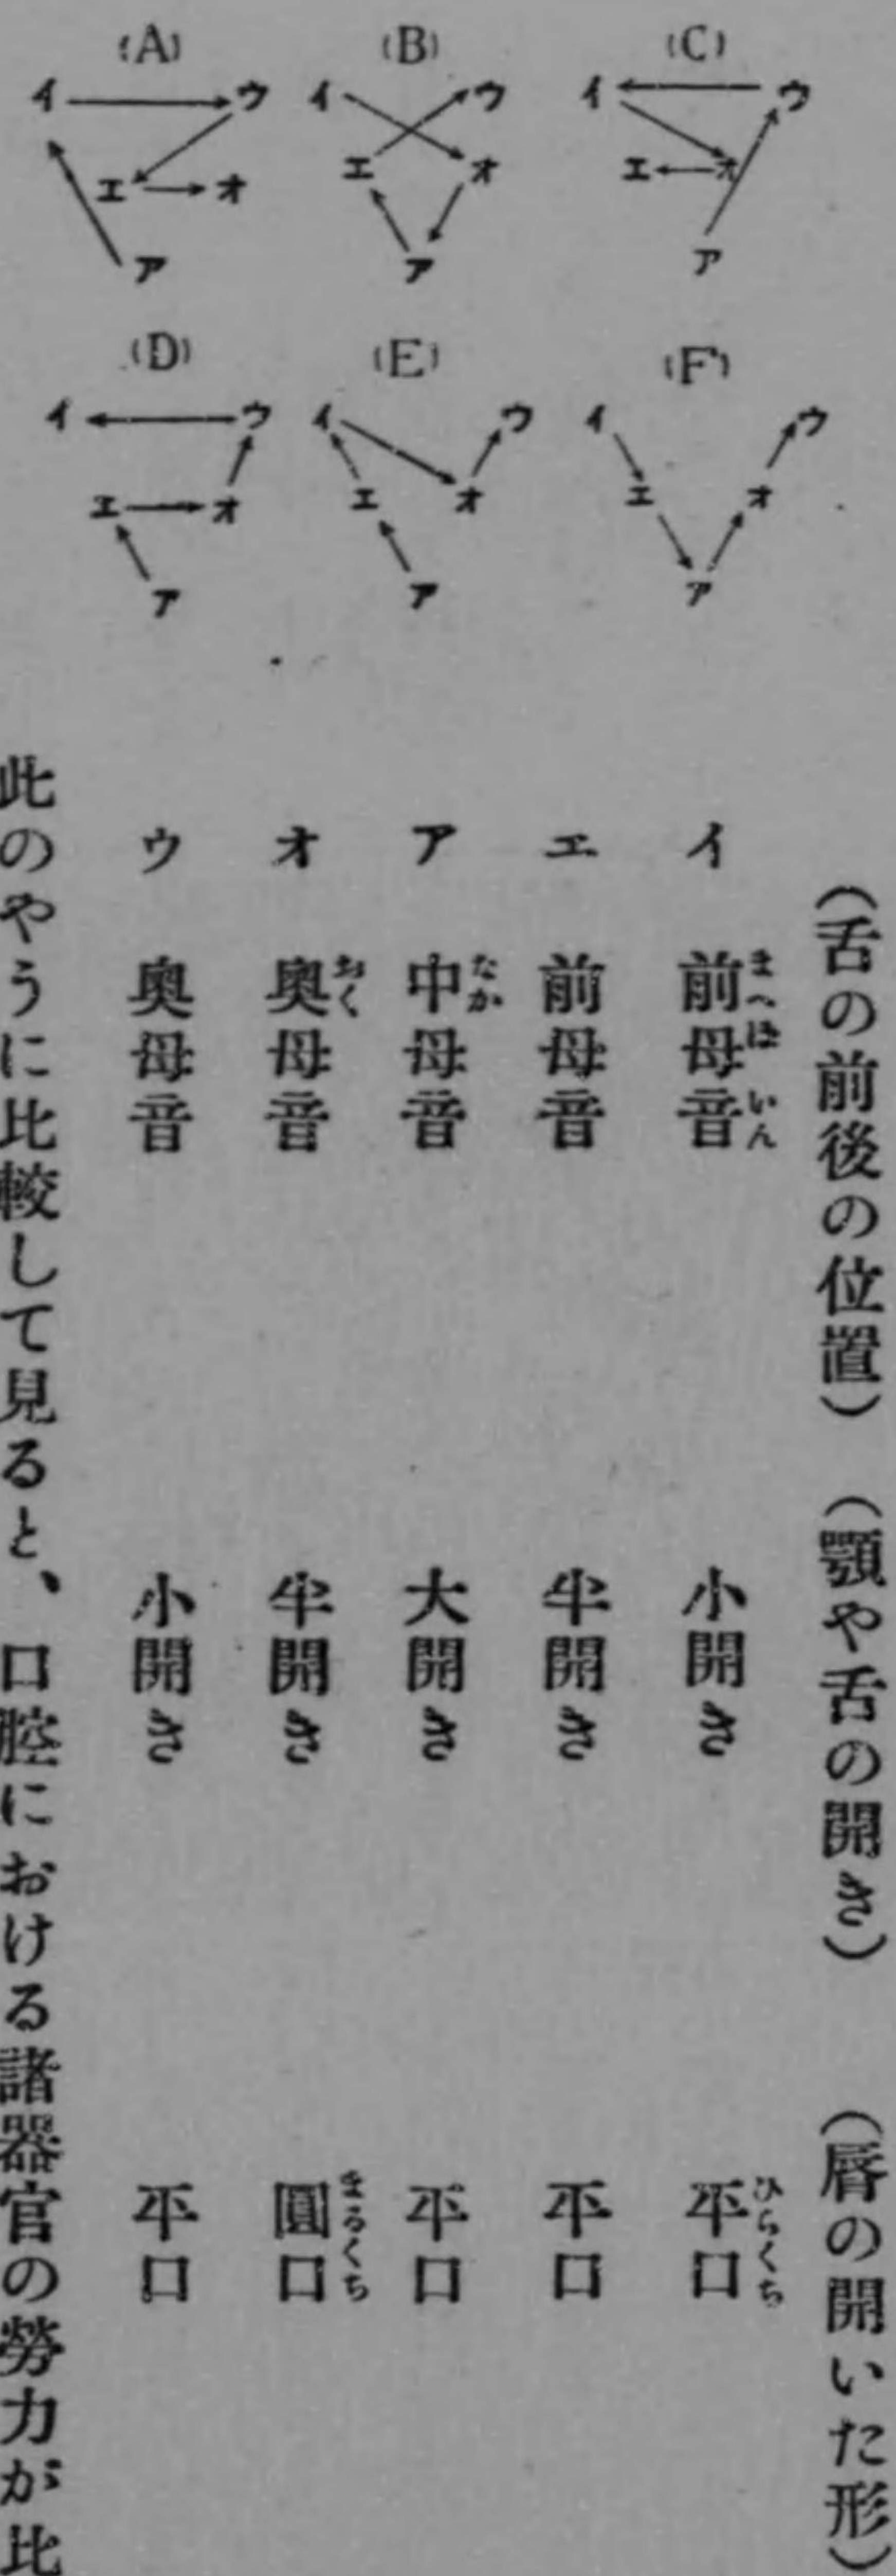 (A)
イ ウ
エ オ
ア
(B)
イ ウ
エ オ
ア
(C)
イ ウ
エ オ
ア
(D)
イ ウ
エ オ
ア
(E)
イ ウ
エ オ
ア
(F)
イ ウ
エ オ
ア
(舌の前後の位置) (顎や舌の開き) (唇の開いた形)
イ 前母音 小開き 平口
まへぼいん ひらくち
エ 前母音 半開き 平口
ア 中母音 大開き 平口
なか
オ 奥母音 半開き 圓口
おく まるくち
ウ 奥母音 小開き 平口
此のやうに比較して見ると、口腔における諸器官の勞力が比